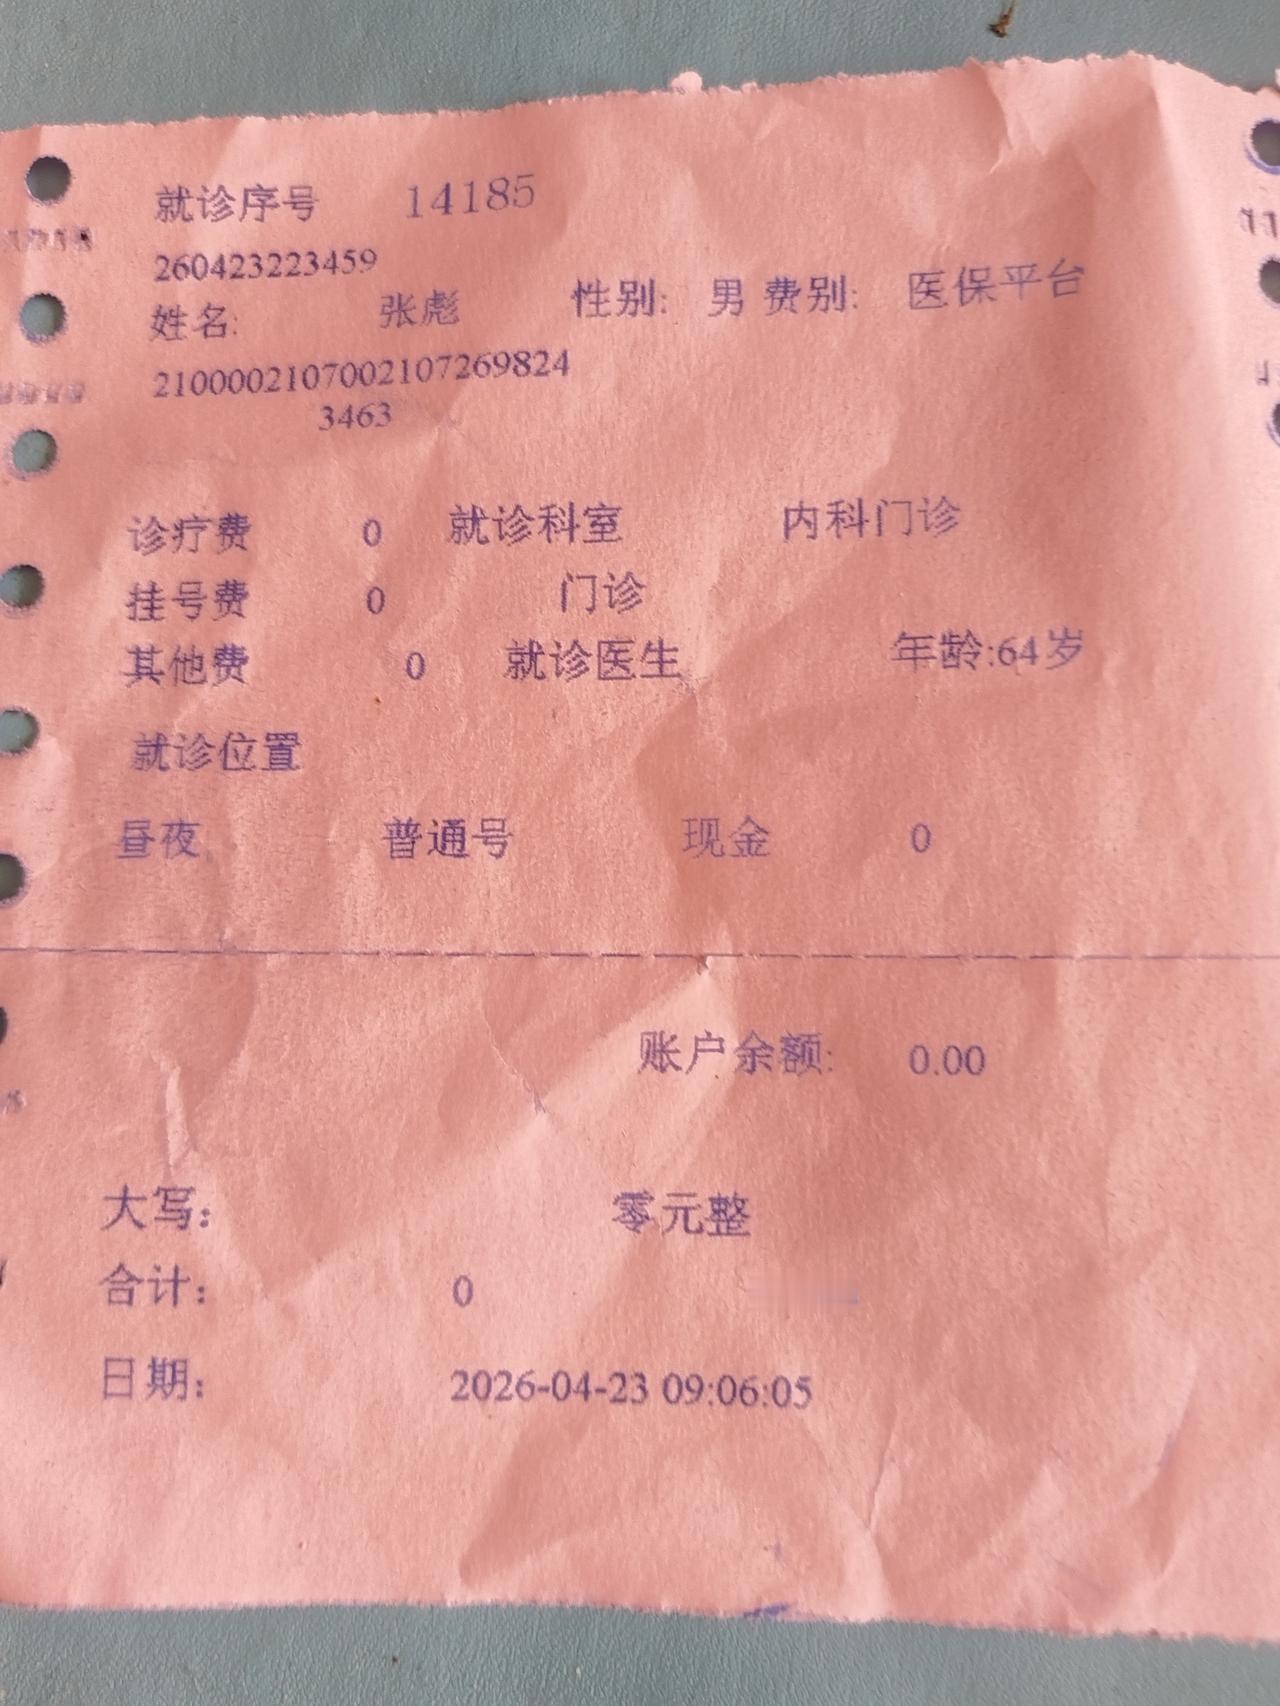 就诊序号 14185
260423223459
姓名: 张彪 性别: 男 费别: 医保平台
2100002107002107269824
3463
诊疗费 0 就诊科室 内科门诊
挂号费 0 门诊
其他费 0 就诊医生 年龄:64岁
就诊位置
昼夜 普通号 现金 0
账户余额: 0.00
大写: 零元整
合计: 0
日期: 2026-04-23 09:06:05